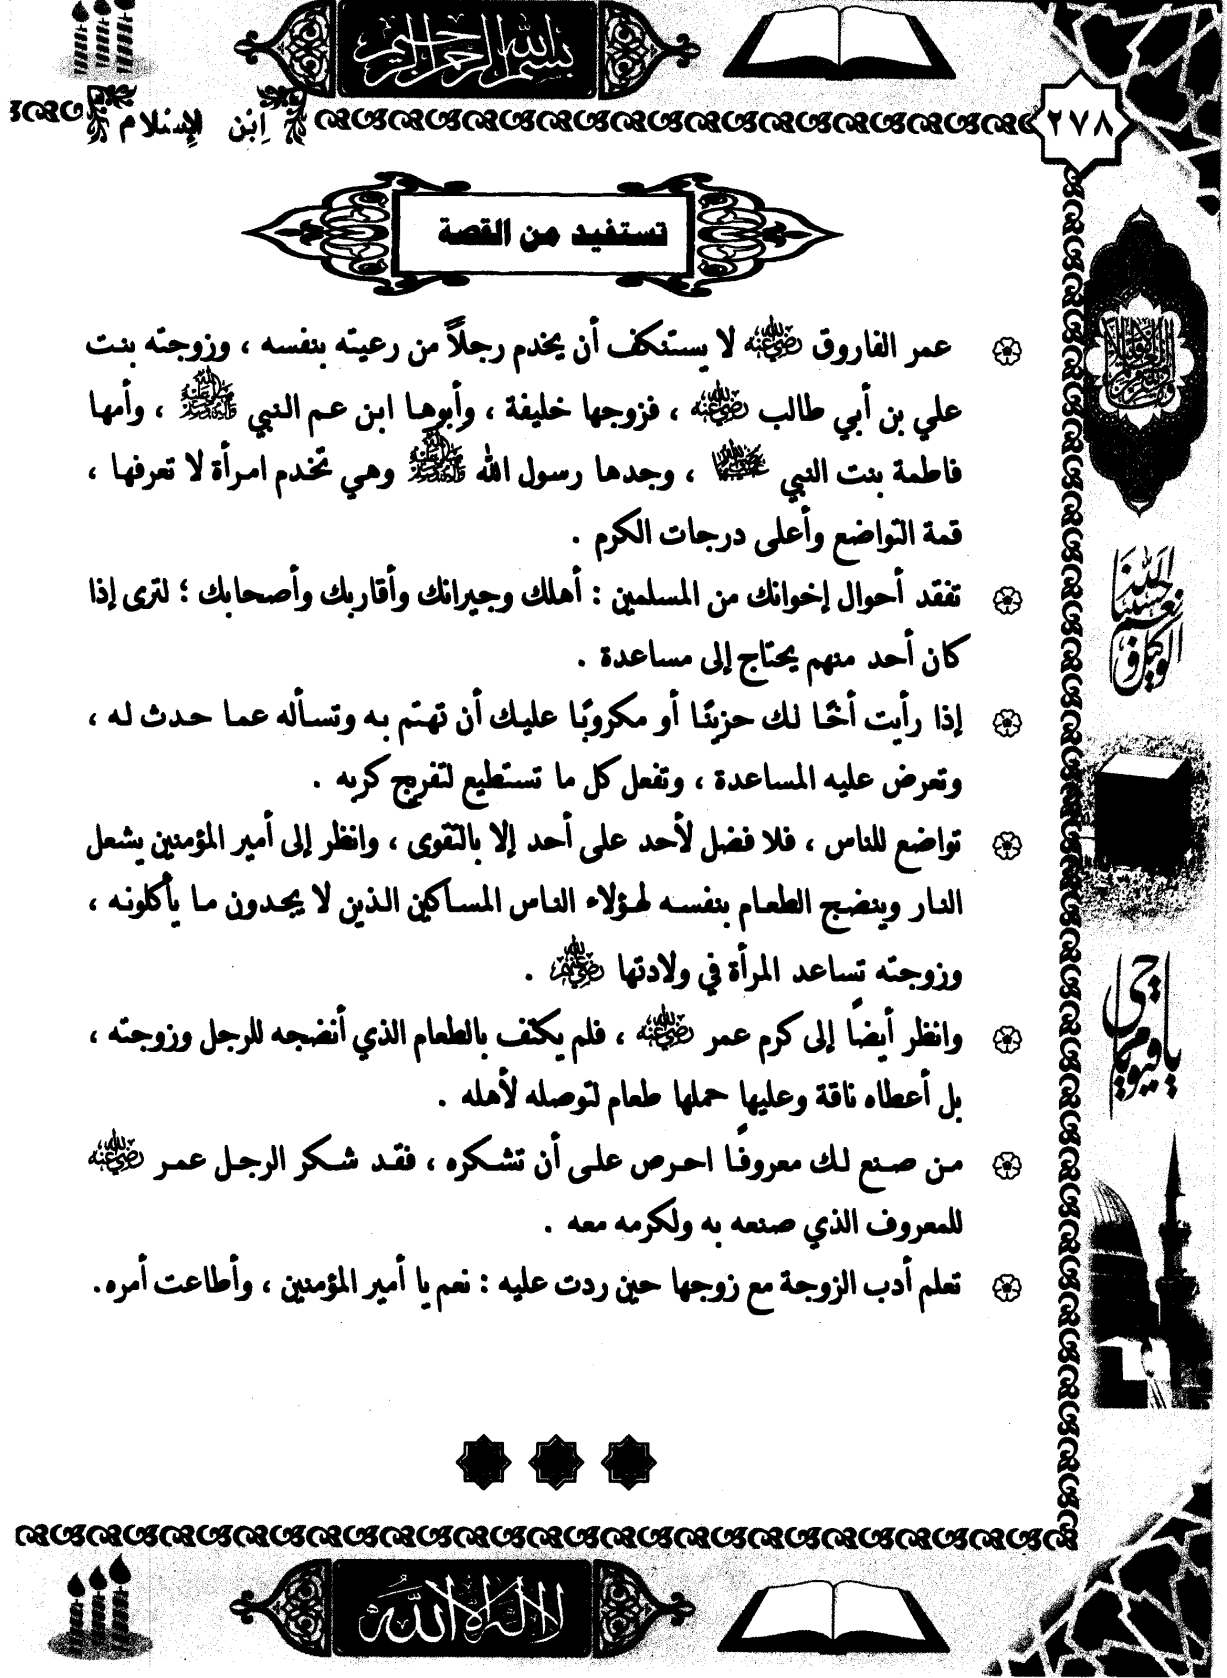 بسم الله الرحمن الرحيم
ابن الإسلام
٢٧٨
تستفيد من القصة
عمر الفاروق رضي الله عنه لا يستنكف أن يخدم رجلاً من رعيته بنفسه ، وزوجته بنت
علي بن أبي طالب رضي الله عنه ، فزوجها خليفة ، وأبوها ابن عم النبي صلى الله عليه وآله وسلم ، وأمها
فاطمة بنت النبي ، وجدها رسول الله صلى الله عليه وآله وسلم وهي تخدم امرأة لا تعرفها ،
قمة التواضع وأعلى درجات الكرم .
تفقد أحوال إخوانك من المسلمين : أهلك وجيرانك وأقاربك وأصحابك ؛ لترى إذا
كان أحد منهم يحتاج إلى مساعدة .
إذا رأيت أخًا لك حزينًا أو مكروبًا عليك أن تهتم به وتسأله عما حدث له ،
وتعرض عليه المساعدة ، وتفعل كل ما تستطيع لتفريج كربه .
تواضع للناس ، فلا فضل لأحد على أحد إلا بالتقوى ، وانظر إلى أمير المؤمنين يشعل
النار وينضج الطعام بنفسه لهؤلاء الناس المساكين الذين لا يجدون ما يأكلونه ،
وزوجته تساعد المرأة في ولادتها رضي الله عنهم .
وانظر أيضًا إلى كرم عمر رضي الله عنه ، فلم يكتف بالطعام الذي أنضجه للرجل وزوجته ،
بل أعطاه ناقة وعليها حملها طعام لتوصله لأهله .
من صنع لك معروفًا احرص على أن تشكره ، فقد شكر الرجل عمر رضي الله عنه
للمعروف الذي صنعه به ولكرمه معه .
تعلم أدب الزوجة مع زوجها حين ردت عليه : نعم يا أمير المؤمنين ، وأطاعت أمره.
حسبنا الله ونعم الوكيل
يا حي يا قيوم
لا إله إلا الله